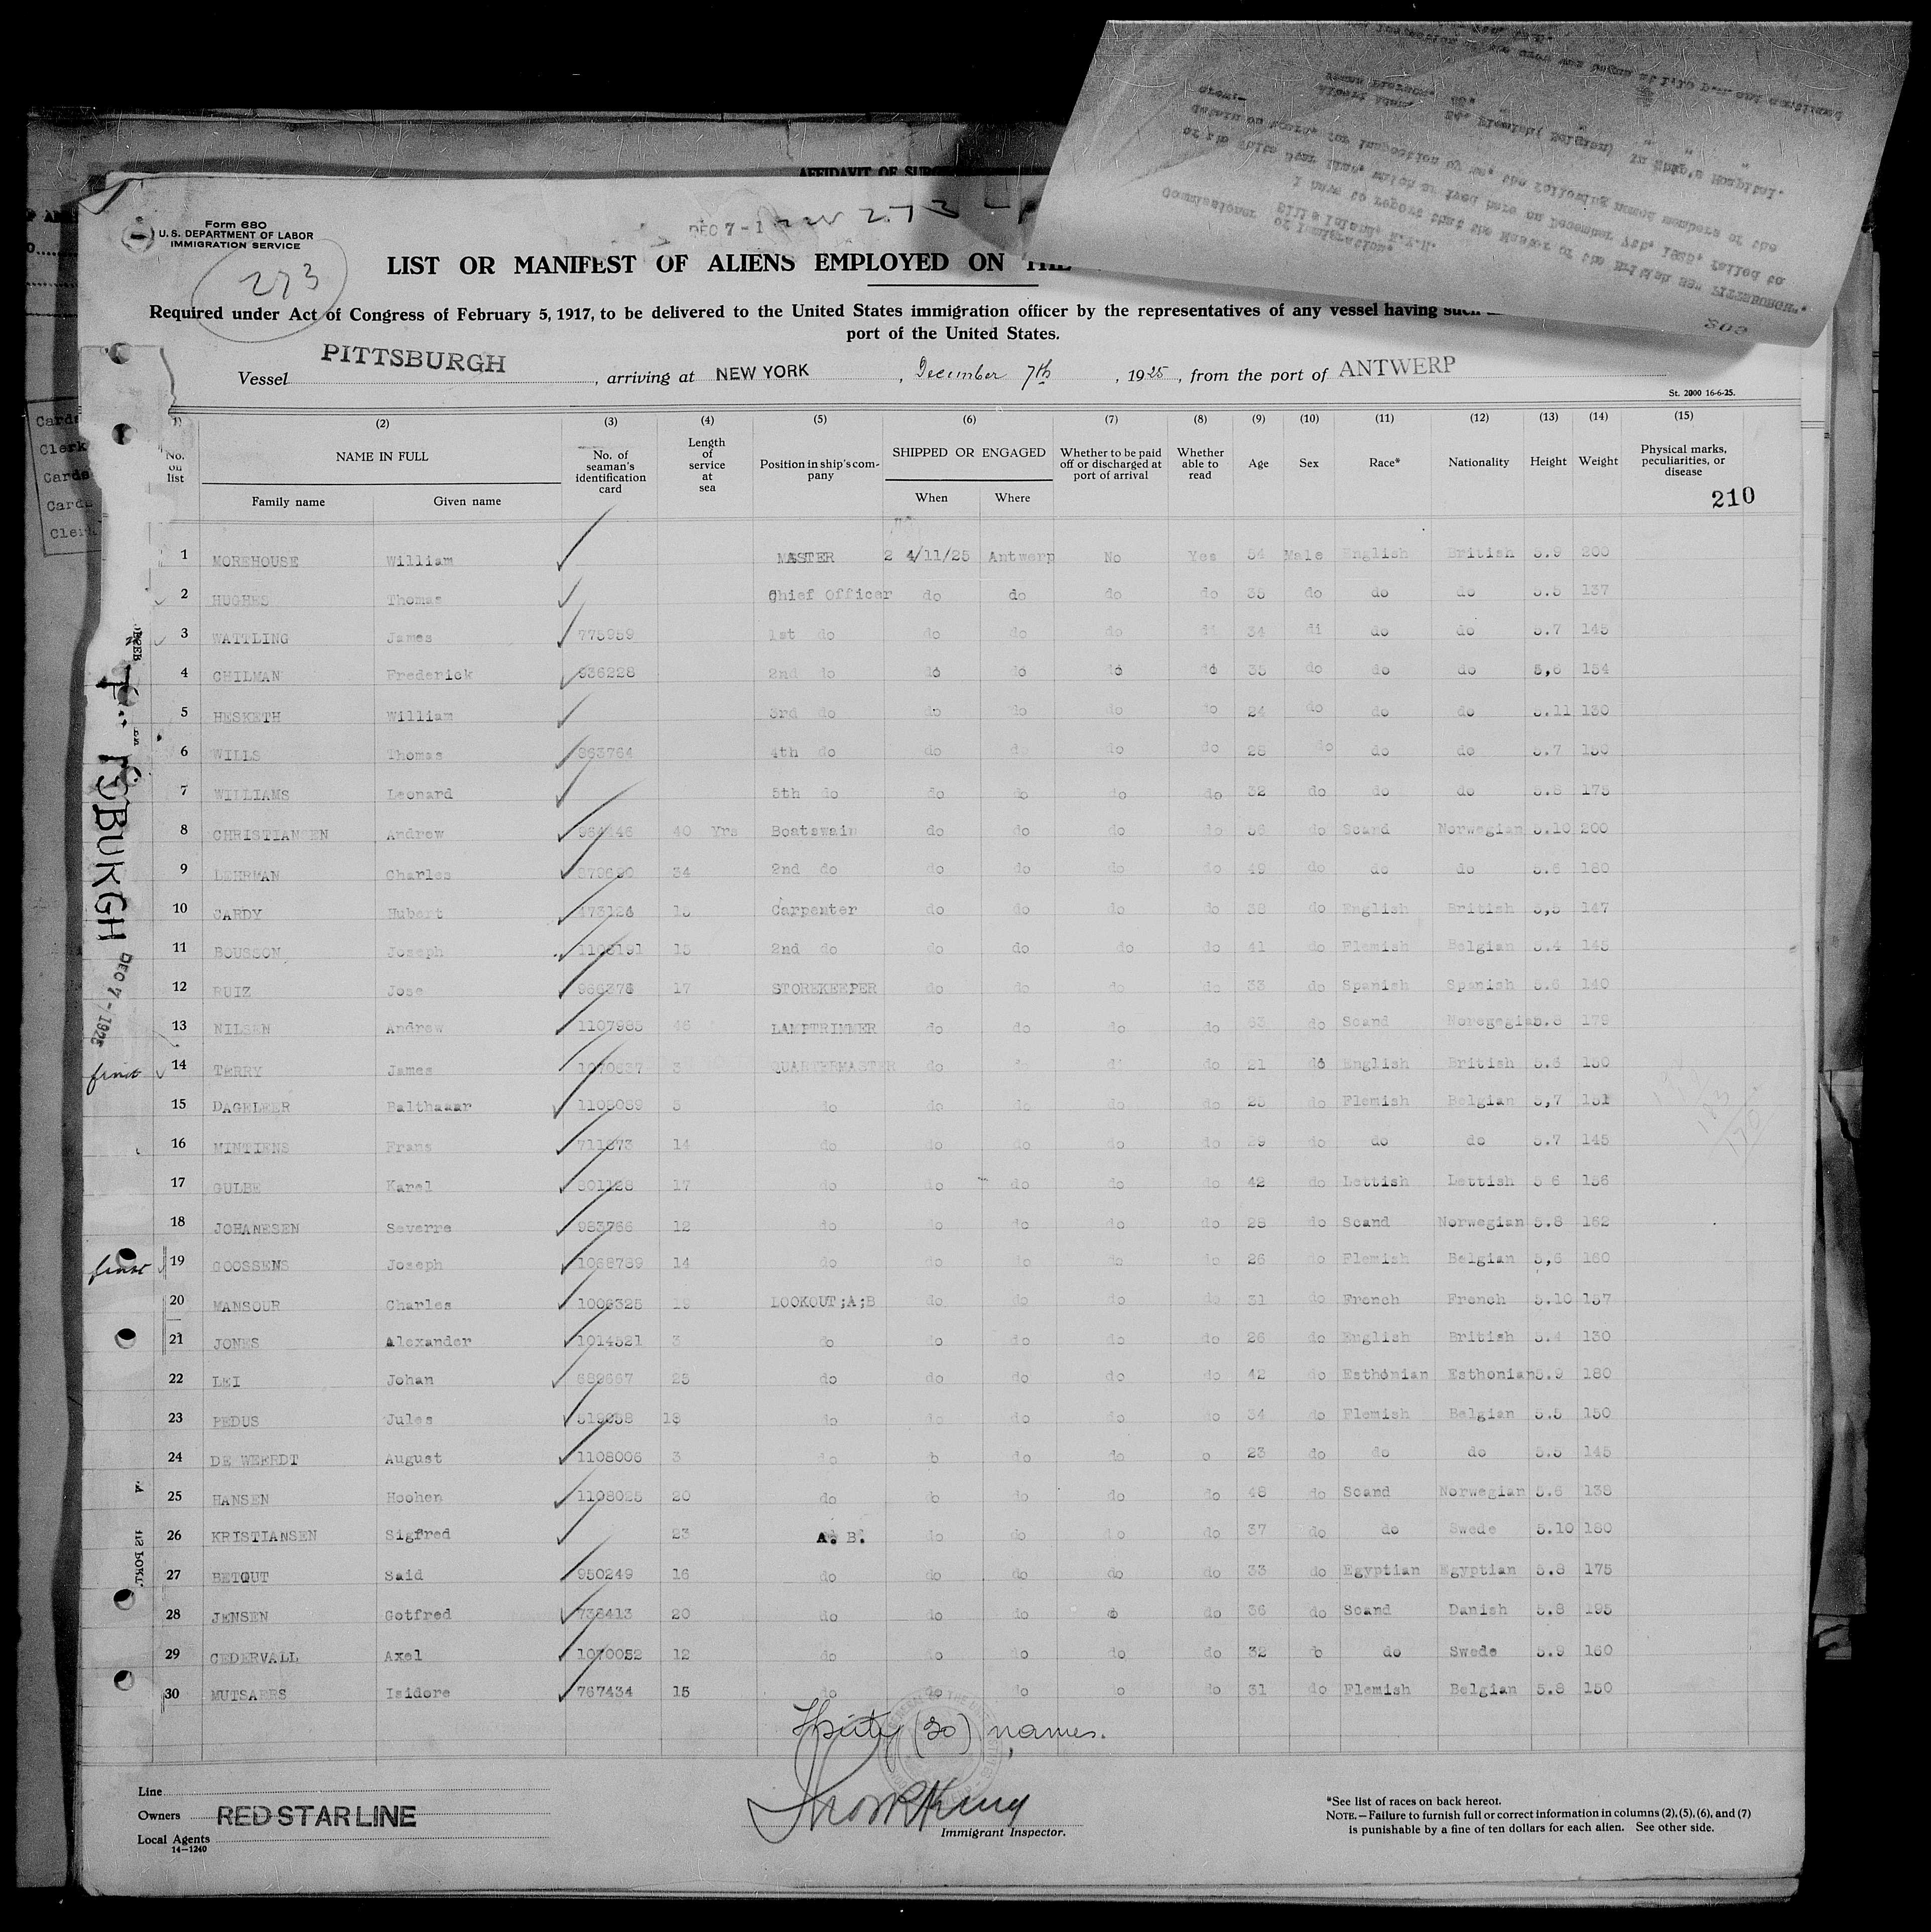 AFFIDAVIT OF SURG
Form 680
U. S. DEPARTMENT OF LABOR
IMMIGRATION SERVICE
273
DEC 7 - 1
273
LIST OR MANIFEST OF ALIENS EMPLOYED ON THE
Required under Act of Congress of February 5, 1917, to be delivered to the United States immigration officer by the representatives of any vessel having such
port of the United States.
Vessel PITTSBURGH, arriving at NEW YORK, December 7th, 1925, from the port of ANTWERP
St. 2000 16-6-25.
(2) (3) (4) (5) (6) (7) (8) (9) (10) (11) (12) (13) (14) (15)
No. on list NAME IN FULL Family name Given name No. of seaman's identification card Length of service at sea Position in ship's company SHIPPED OR ENGAGED When Where Whether to be paid off or discharged at port of arrival Whether able to read Age Sex Race* Nationality Height Weight Physical marks, peculiarities, or disease
210
1 MOREHOUSE William MASTER 2 4/11/25 Antwerp No Yes 54 Male English British 5.9 200
2 HUGHES Thomas Chief Officer do do do do 35 do do do 5.5 137
3 WATTLING James 775959 1st do do do do di 34 di do do 5.7 145
4 CHILMAN Frederick 936228 2nd do do do do do 35 do do do 5,6 154
5 HESKETH William 3rd do do do do do 24 do do do 5.11 130
6 WILLS Thomas 863764 4th do do do do do 28 do do do 5.7 150
7 WILLIAMS Leonard 5th do do do do do 32 do do do 5.8 175
8 CHRISTIANSEN Andrew 40 Yrs Boatswain do do do do 56 do Scand Norwegian 5.10 200
9 LEHRMAN Charles 34 2nd do do do do do 49 do do do 5.8 180
10 CARDY Hubert 473126 15 Carpenter do do do do 38 do English British 5,5 147
11 BOUSSON Joseph 1108191 15 2nd do do do do do 41 do Flemish Belgian 5.4 145
12 RUIZ Jose 966376 17 STOREKEEPER do do do do 33 do Spanish Spanish 5.6 140
13 NILSEN Andrew 1107985 46 LAMPTRIMMER do do do do 63 do Scand Noregegian 5.8 179
14 TERRY James 1070637 3 QUARTERMASTER do di do 21 do English British 5.6 150
15 DAGELEER Balthaaar 1108059 5 do do do do do 25 do Flemish Belgian 5,7 151
16 MINTIENS Frans 711873 14 do do do do do 29 do do do 5.7 145
17 GULBE Karel 801128 17 do do do do do 42 do Lettish Lettish 5 6 156
18 JOHANESEN Severre 983766 12 do do do do do 28 do Scand Norwegian 5.8 162
19 GOOSSENS Joseph 1068789 14 do do do do do 26 do Flemish Belgian 5,6 160
20 MANSOUR Charles 1006325 19 LOOKOUT;A;B do do do do 31 do French French 5.10 157
21 JONES Alexander 1014521 3 do do do do do 26 do English British 5.4 130
22 LEI Johan 689667 25 do do do do do 42 do Esthonian Esthonian 5.9 180
23 PEDUS Jules 519058 18 do do do do do 34 do Flemish Belgian 5.5 150
24 DE WEERDT August 1108006 3 do o do do o 23 do do do 5.5 145
25 HANSEN Hoohen 1108025 20 do do do do do 48 do Scand Norwegian 5.6 138
26 KRISTIANSEN Sigfred 23 A. B. do do do do 37 do do Swede 5.10 180
27 BETOUT Said 950249 16 do do do do do 33 do Egyptian Egyptian 5.8 175
28 JENSEN Gotfred 736413 20 do do do do do 36 do Scand Danish 5.8 195
29 CEDERVALL Axel 1070052 12 do do do do do 32 do do Swede 5.9 160
30 MUTSAERS Isidore 767434 15 do do do do do 31 do Flemish Belgian 5.8 150
Thirty (30) names.
Line
Owners RED STAR LINE
Local Agents
14—1240
Immigrant Inspector.
*See list of races on back hereof.
NOTE.—Failure to furnish full or correct information in columns (2), (5), (6), and (7)
is punishable by a fine of ten dollars for each alien. See other side.
DEC 7 - 1925
302
Commissioner of Immigration,
Ellis Island, N.Y.H.
I have to report that the Master of the British SS. "PITTSBURGH",
of the White Star Line, which arrived here on December 7th, 1925, failed to
detain on board, for inspection by me, the following named members of the
crew:-